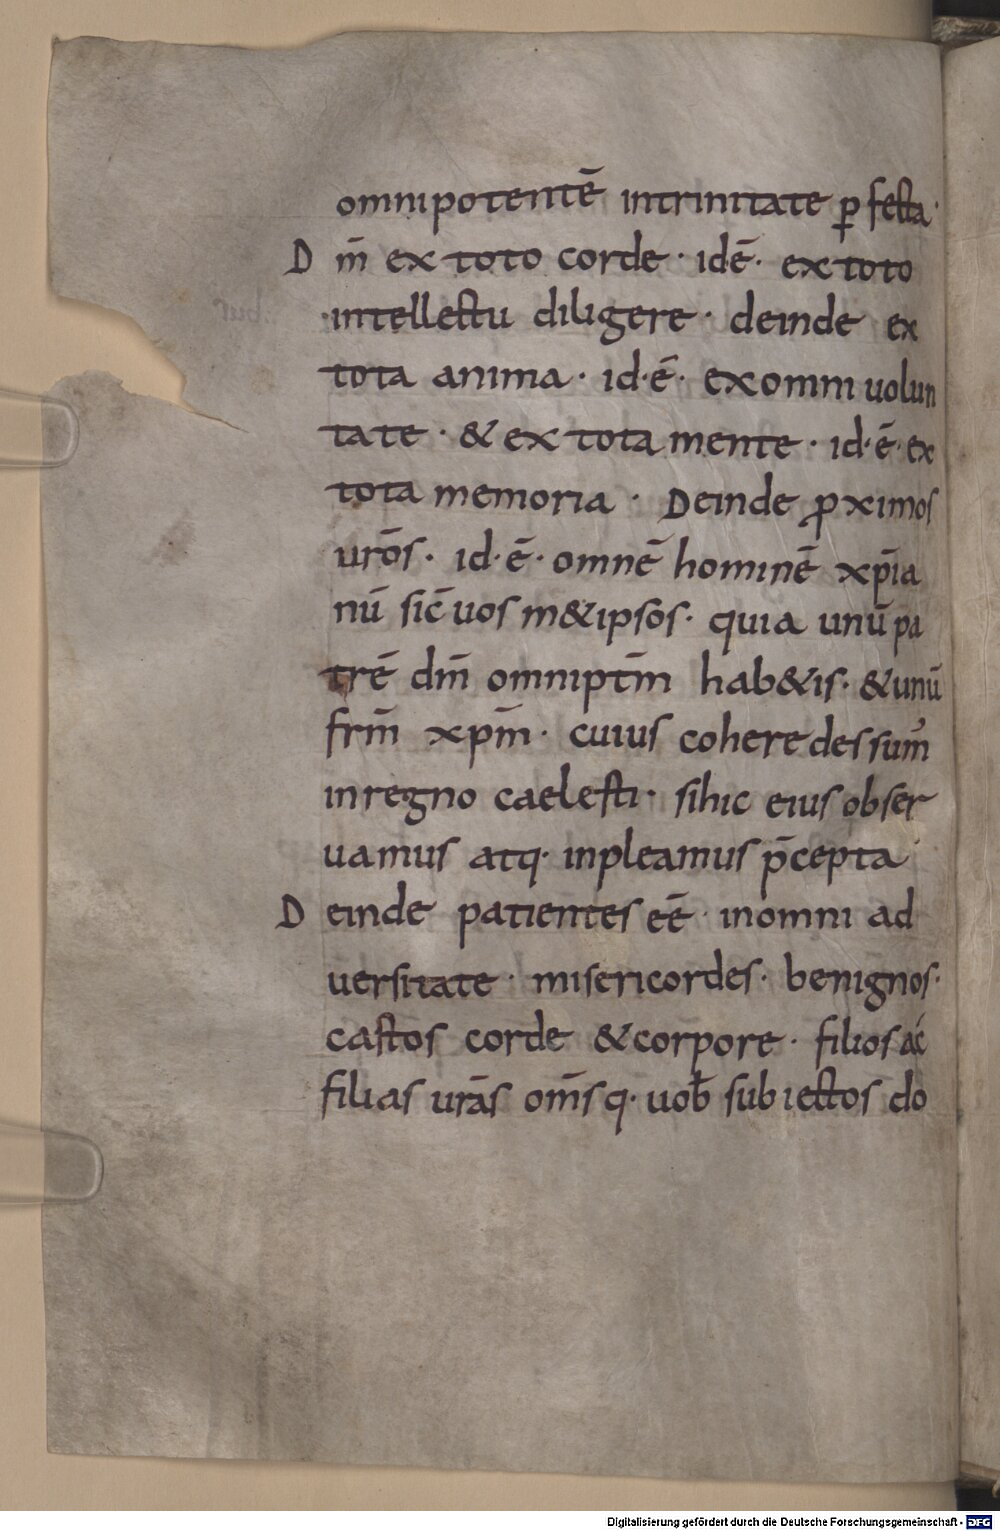 omnipotentē intrinitate ꝑfecta·
Dm̄ ex toto corde · idē· ex toto
·intellectu diligere · deinde ex
tota anima · id·ē· exomni uolun
tate · & ex tota mente · id·ē· ex
tota memoria · Deinde ꝓximos
urōs · id·ē· omnē hominē xp̄ia
nū sic̄ uos m&ipsos· quia unū pa
trē dm̄ omnipt̄m hab&is· &unū
frm̄ xpm̄ · cuius coheredes sum̄
inregno caelesti· sihic eius obser
uamus atq· inpleamus p̄cepta
Deinde patientes eē· inomni ad
uersitate · misericordes· benignos·
castos corde &corpore · filios ac
filias urās om̄sq· uob̄ subiectos do
Digitalisierung gefördert durch die Deutsche Forschungsgemeinschaft - DFG